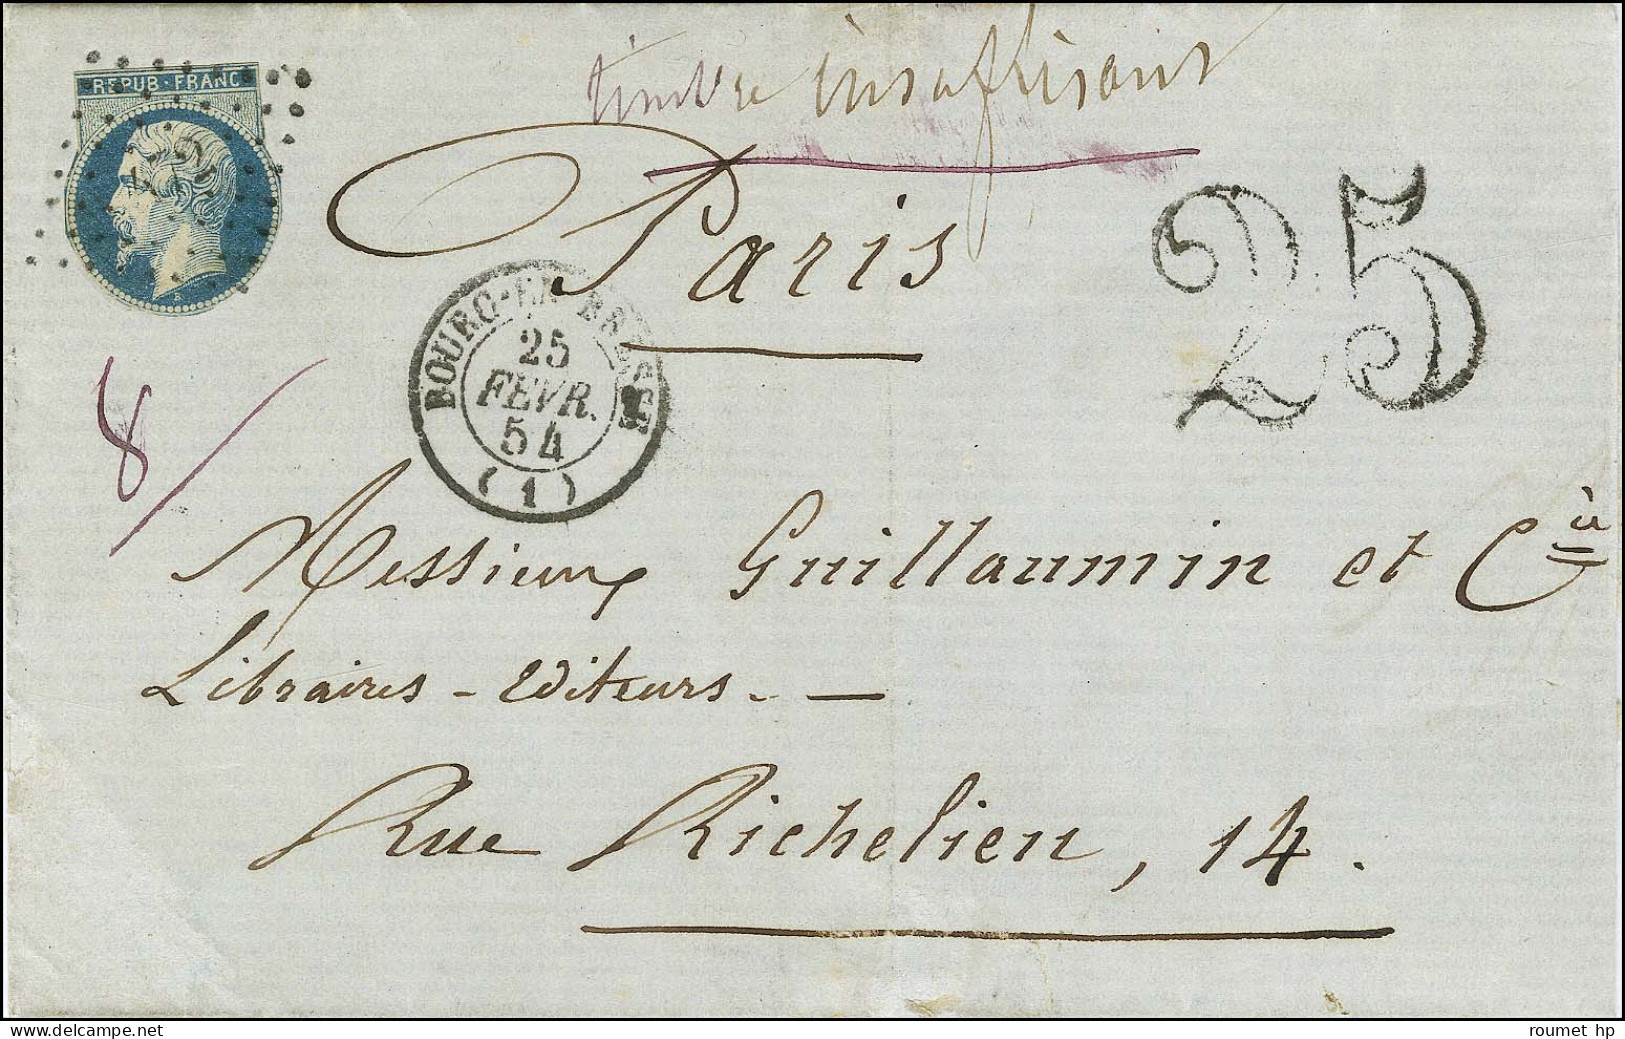 timbre insuffisant
REPUB·FRANC
472
B
Paris
25
BOURG-EN-BRESSE
25
FEVR.
54
(1)
8/
Messieurs Guillaumin et Cie
Libraires-editeurs. —
Rue Richelieu, 14.
roumet hp
www.delcampe.net